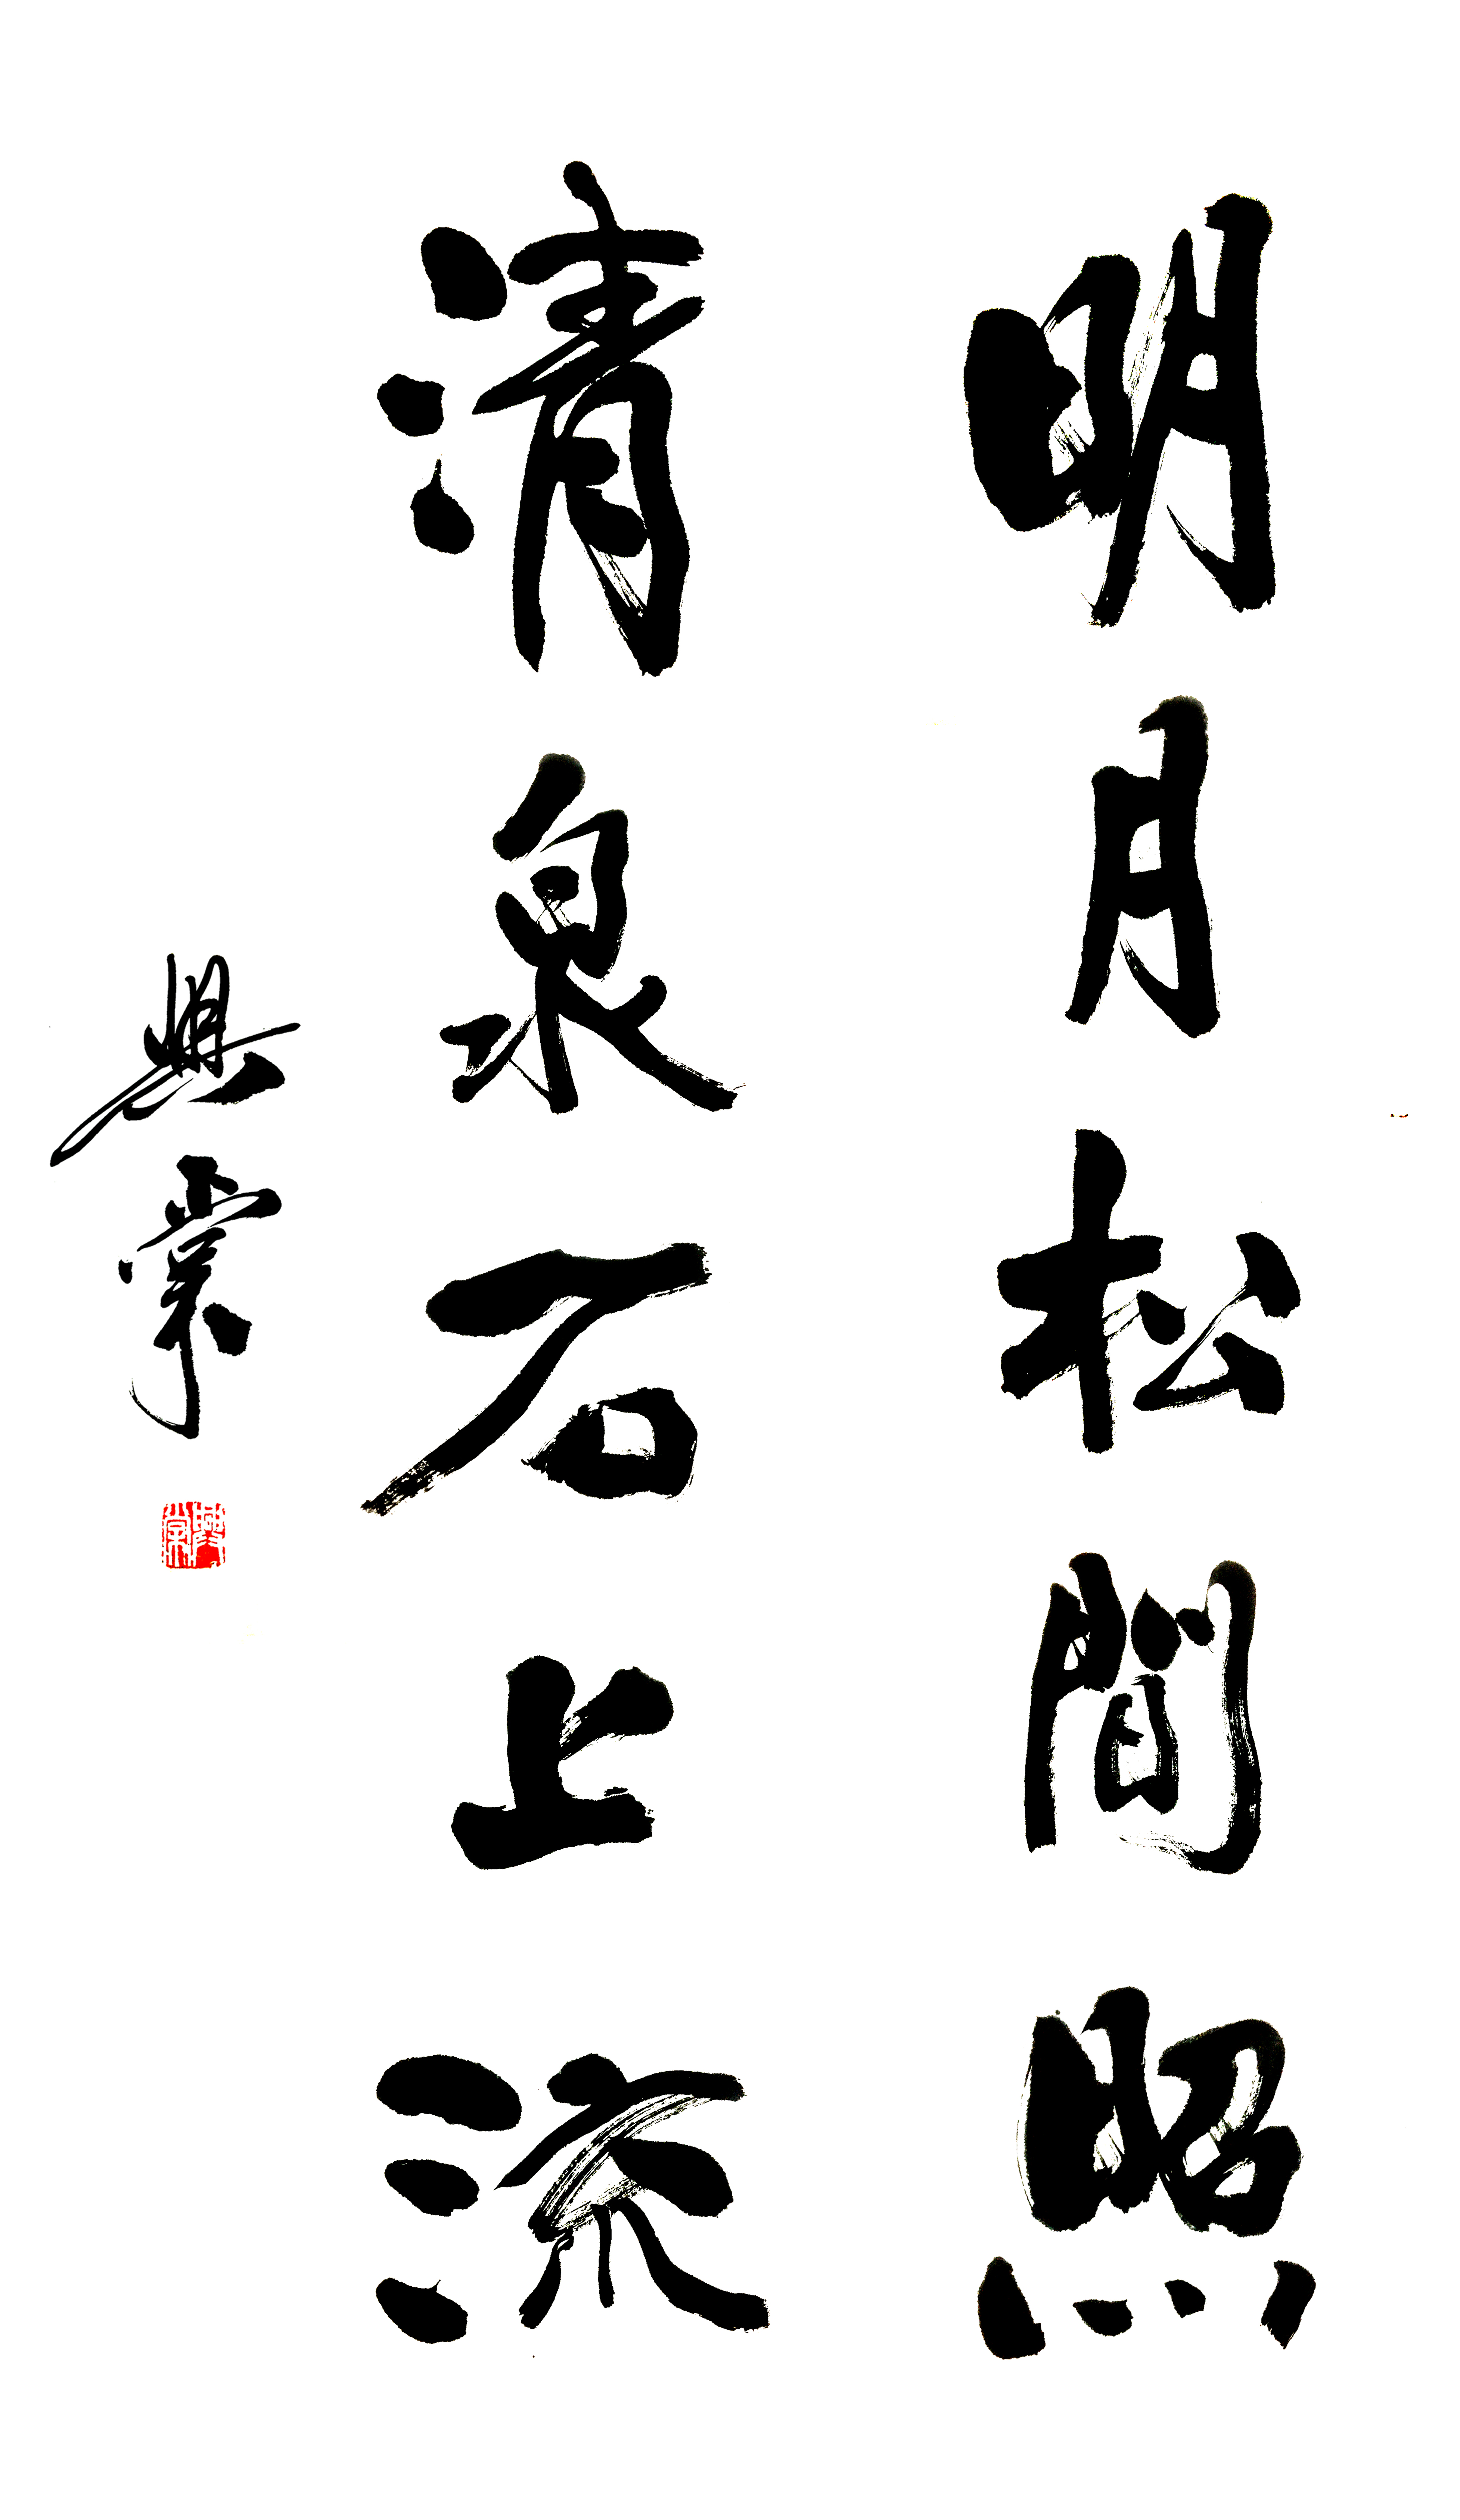 明月松間照
清泉石上流
興崇